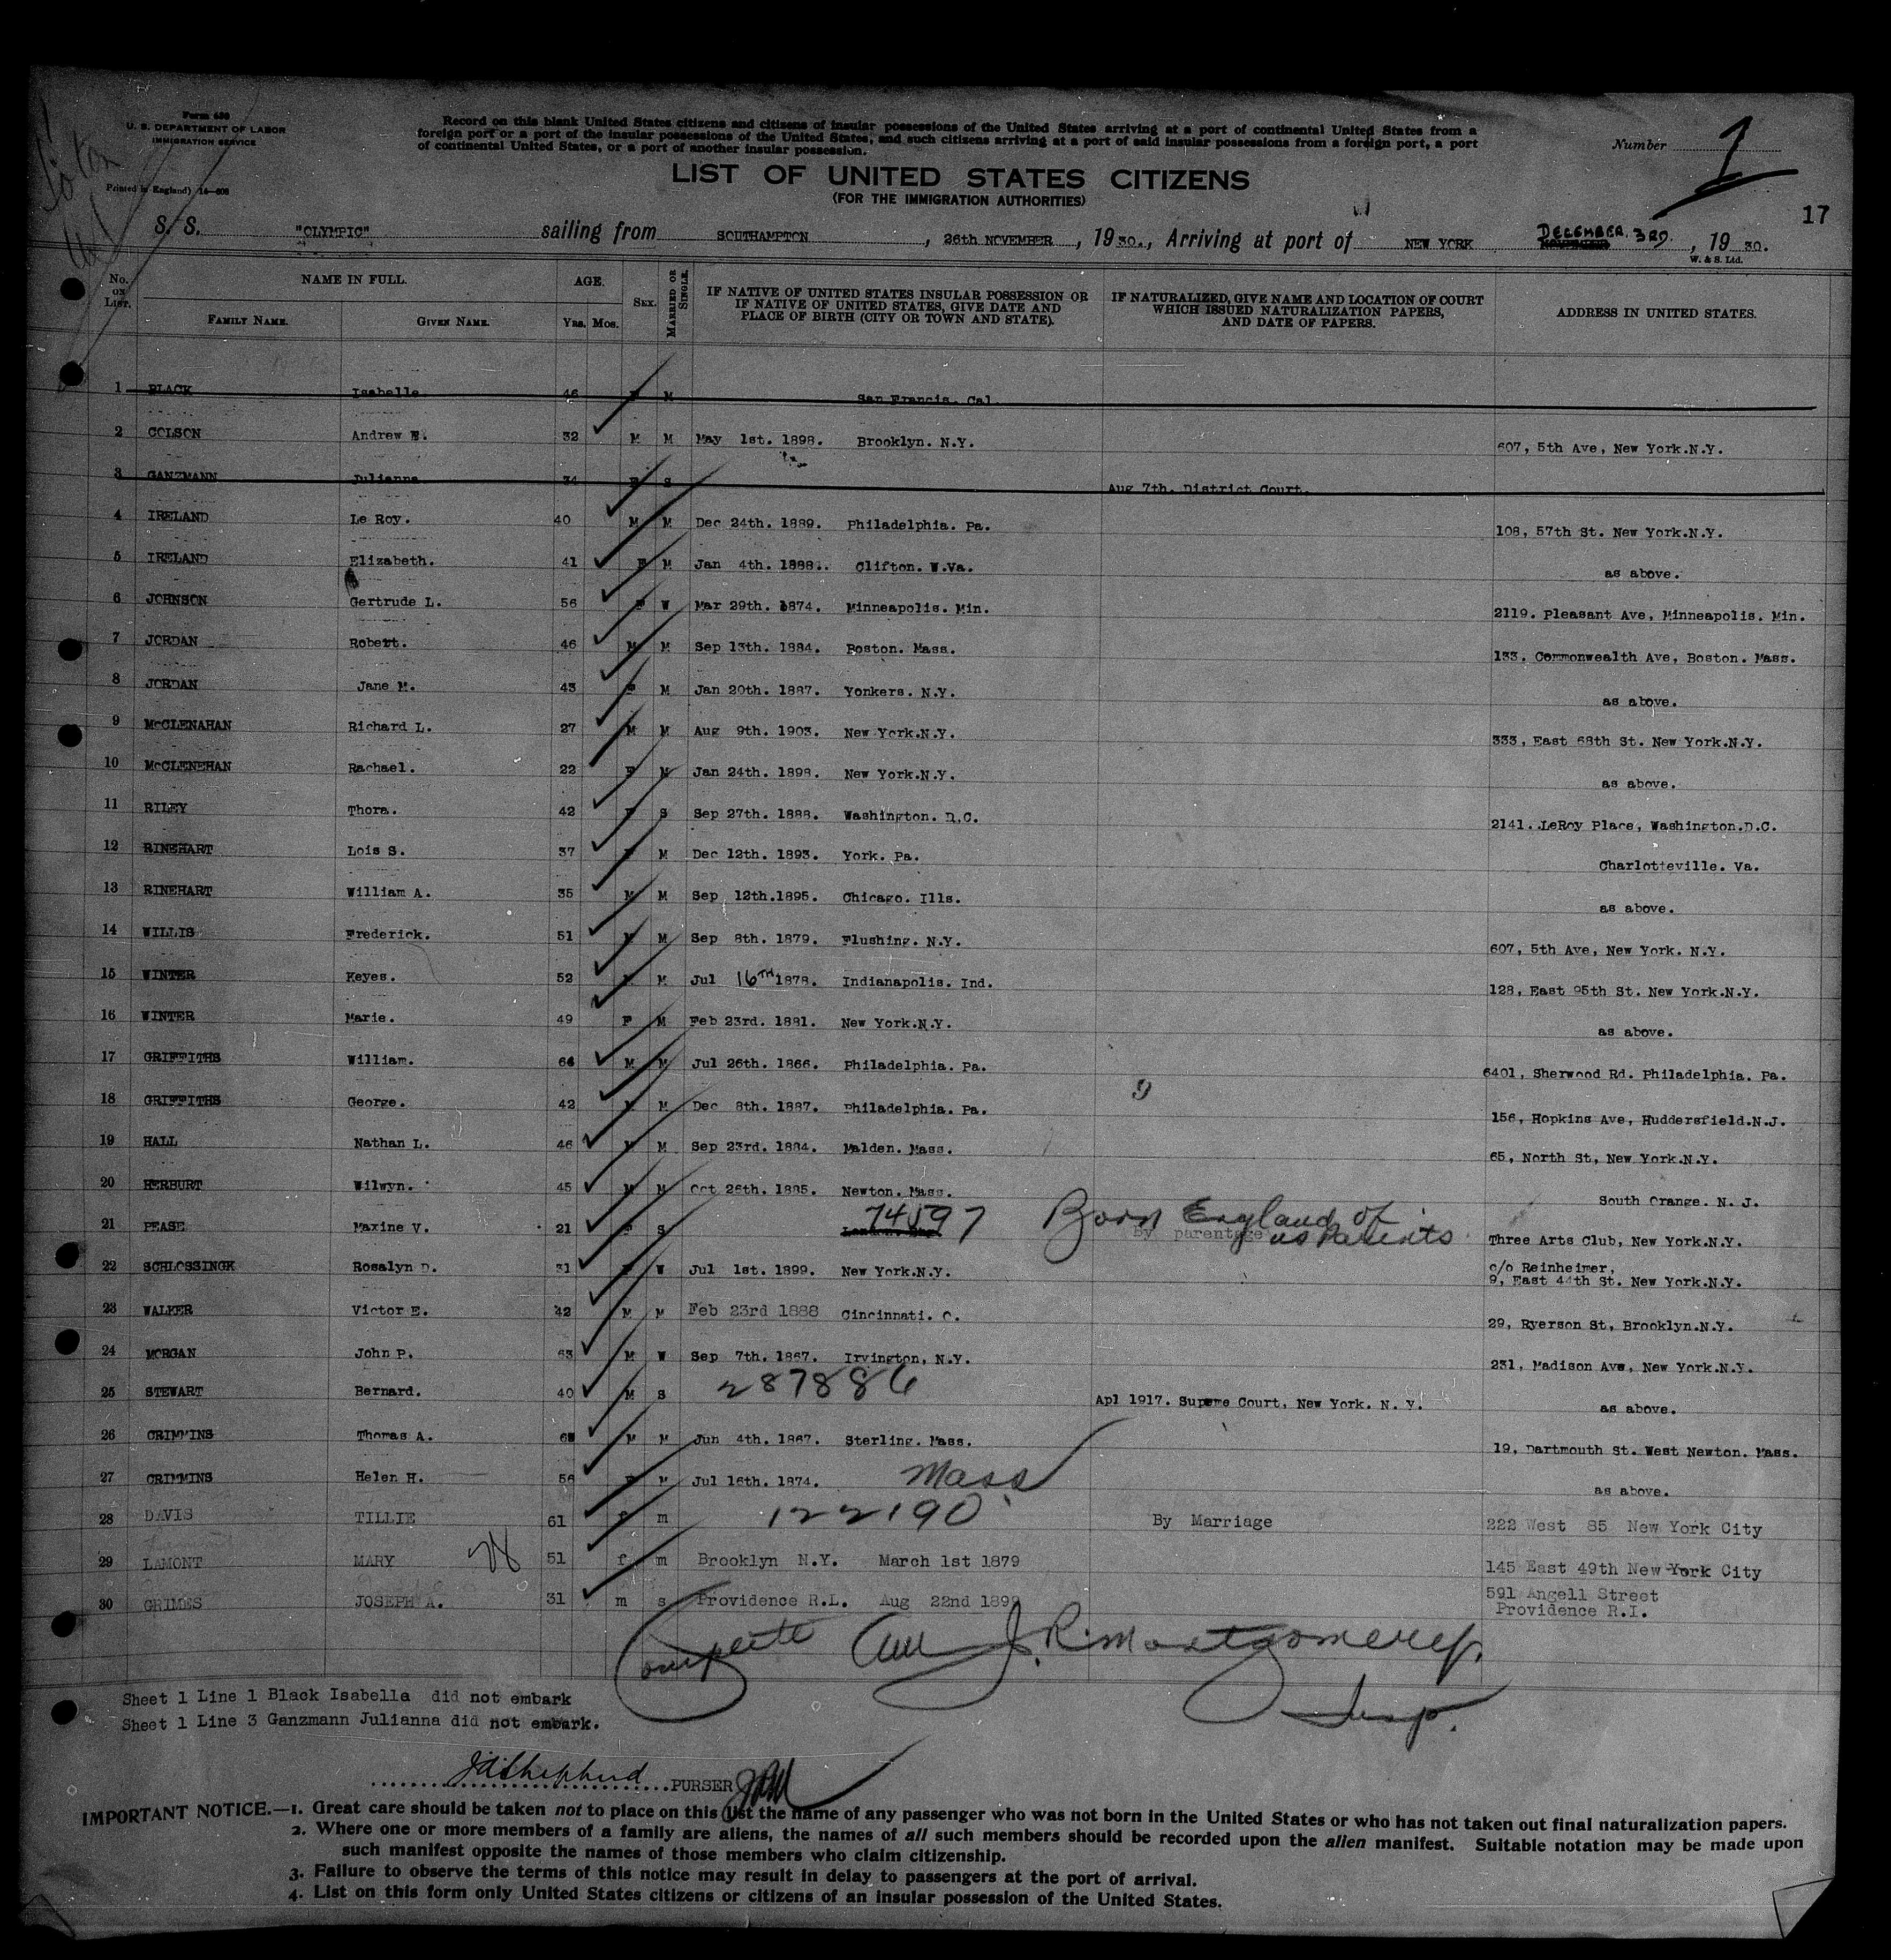 Form 630
U. S. DEPARTMENT OF LABOR
IMMIGRATION SERVICE
Printed in England) 14—608
Record on this blank United States citizens and citizens of insular possessions of the United States arriving at a port of continental United States from a
foreign port or a port of the insular possessions of the United States, and such citizens arriving at a port of said insular possessions from a foreign port, a port
of continental United States, or a port of another insular possession.
Number 1
LIST OF UNITED STATES CITIZENS
(FOR THE IMMIGRATION AUTHORITIES)
17
S. S. "OLYMPIC" sailing from SOUTHAMPTON, 26th NOVEMBER, 1930., Arriving at port of NEW YORK DECEMBER. 3RD., 1930.
W. & S. Ltd.
No. on List. NAME IN FULL. AGE. Sex. Married or Single. IF NATIVE OF UNITED STATES INSULAR POSSESSION OR IF NATIVE OF UNITED STATES, GIVE DATE AND PLACE OF BIRTH (CITY OR TOWN AND STATE). IF NATURALIZED, GIVE NAME AND LOCATION OF COURT WHICH ISSUED NATURALIZATION PAPERS, AND DATE OF PAPERS. ADDRESS IN UNITED STATES.
Family Name. Given Name. Yrs. Mos.
1 BLACK Isabella 46 F M San Francis. Cal.
2 COLSON Andrew E. 32 M M May 1st. 1898. Brooklyn. N.Y. 607, 5th Ave, New York.N.Y.
3 GANZMANN Julianna 34 F S Aug 7th. District Court.
4 IRELAND Le Roy. 40 M M Dec 24th. 1889. Philadelphia. Pa. 108, 57th St. New York.N.Y.
5 IRELAND Elizabeth. 41 F M Jan 4th. 1888.. Clifton. W.Va. as above.
6 JOHNSON Gertrude L. 56 F W Mar 29th. 1874. Minneapolis. Min. 2119. Pleasant Ave, Minneapolis. Min.
7 JORDAN Robert. 46 M M Sep 13th. 1884. Boston. Mass. 133, Commonwealth Ave, Boston. Mass.
8 JORDAN Jane M. 43 F M Jan 20th. 1887. Yonkers. N.Y. as above.
9 McCLENAHAN Richard L. 27 M M Aug 9th. 1903. New York.N.Y. 333, East 68th St. New York.N.Y.
10 McCLENEHAN Rachael. 22 F M Jan 24th. 1898. New York.N.Y. as above.
11 RILEY Thora. 42 F S Sep 27th. 1888. Washington. D.C. 2141. LeRoy Place, Washington.D.C.
12 RINEHART Lois S. 37 F M Dec 12th. 1893. York. Pa. Charlotteville. Va.
13 RINEHART William A. 35 M M Sep 12th.1895. Chicago. Ills. as above.
14 WILLIS Frederick. 51 M M Sep 8th. 1879. Flushing. N.Y. 607, 5th Ave, New York. N.Y.
15 WINTER Keyes. 52 M M Jul 16TH 1878. Indianapolis. Ind. 128, East 95th St. New York.N.Y.
16 WINTER Marie. 49 F M Feb 23rd. 1881. New York.N.Y. as above.
17 GRIFFITHS William. 64 M M Jul 26th. 1866. Philadelphia. Pa. 6401, Sherwood Rd. Philadelphia. Pa.
18 GRIFFITHS George. 42 M M Dec 8th. 1887. Philadelphia. Pa. 156, Hopkins Ave, Huddersfield.N.J.
19 HALL Nathan L. 46 M M Sep 23rd. 1884. Malden. Mass. 65, North St, New York.N.Y.
20 HERBURT Wilwyn. 45 M M Oct 26th. 1885. Newton. Mass. South Orange. N. J.
21 PEASE Maxine V. 21 F S 74597 Born England of us Parents By parentage Three Arts Club, New York.N.Y.
22 SCHLOSSINGK Rosalyn D. 31 F W Jul 1st. 1899. New York.N.Y. c/o Reinheimer, 9, East 44th St. New York.N.Y.
23 WALKER Victor E. 42 M M Feb 23rd 1888 Cincinnati. O. 29, Ryerson St, Brooklyn.N.Y.
24 MORGAN John P. 63 M W Sep 7th. 1867. Irvington, N.Y. 231, Madison Ave, New York.N.Y.
25 STEWART Bernard. 40 M S 287886 Apl 1917. Supeme Court, New York. N. Y. as above.
26 CRIMMINS Thomas A. M M Jun 4th. 1867. Sterling. Mass. 19, Dartmouth St. West Newton. Mass.
27 CRIMMINS Helen H. 56 F M Jul 16th. 1874. Mass as above.
28 DAVIS TILLIE 61 f m 122190 By Marriage 222 West 85 New York City
29 LAMONT MARY 51 f m Brooklyn N.Y. March 1st 1879 145 East 49th New York City
30 GRIMES JOSEPH A. 31 m s Providence R.L. Aug 22nd 1899 591 Angell Street Providence R.I.
Complete J. R. Montgomery.
Insp.
Sheet 1 Line 1 Black Isabella did not embark
Sheet 1 Line 3 Ganzmann Julianna did not embark.
JAShepherd PURSER JRM
IMPORTANT NOTICE.—1. Great care should be taken not to place on this list the name of any passenger who was not born in the United States or who has not taken out final naturalization papers.
2. Where one or more members of a family are aliens, the names of all such members should be recorded upon the alien manifest. Suitable notation may be made upon
such manifest opposite the names of those members who claim citizenship.
3. Failure to observe the terms of this notice may result in delay to passengers at the port of arrival.
4. List on this form only United States citizens or citizens of an insular possession of the United States.